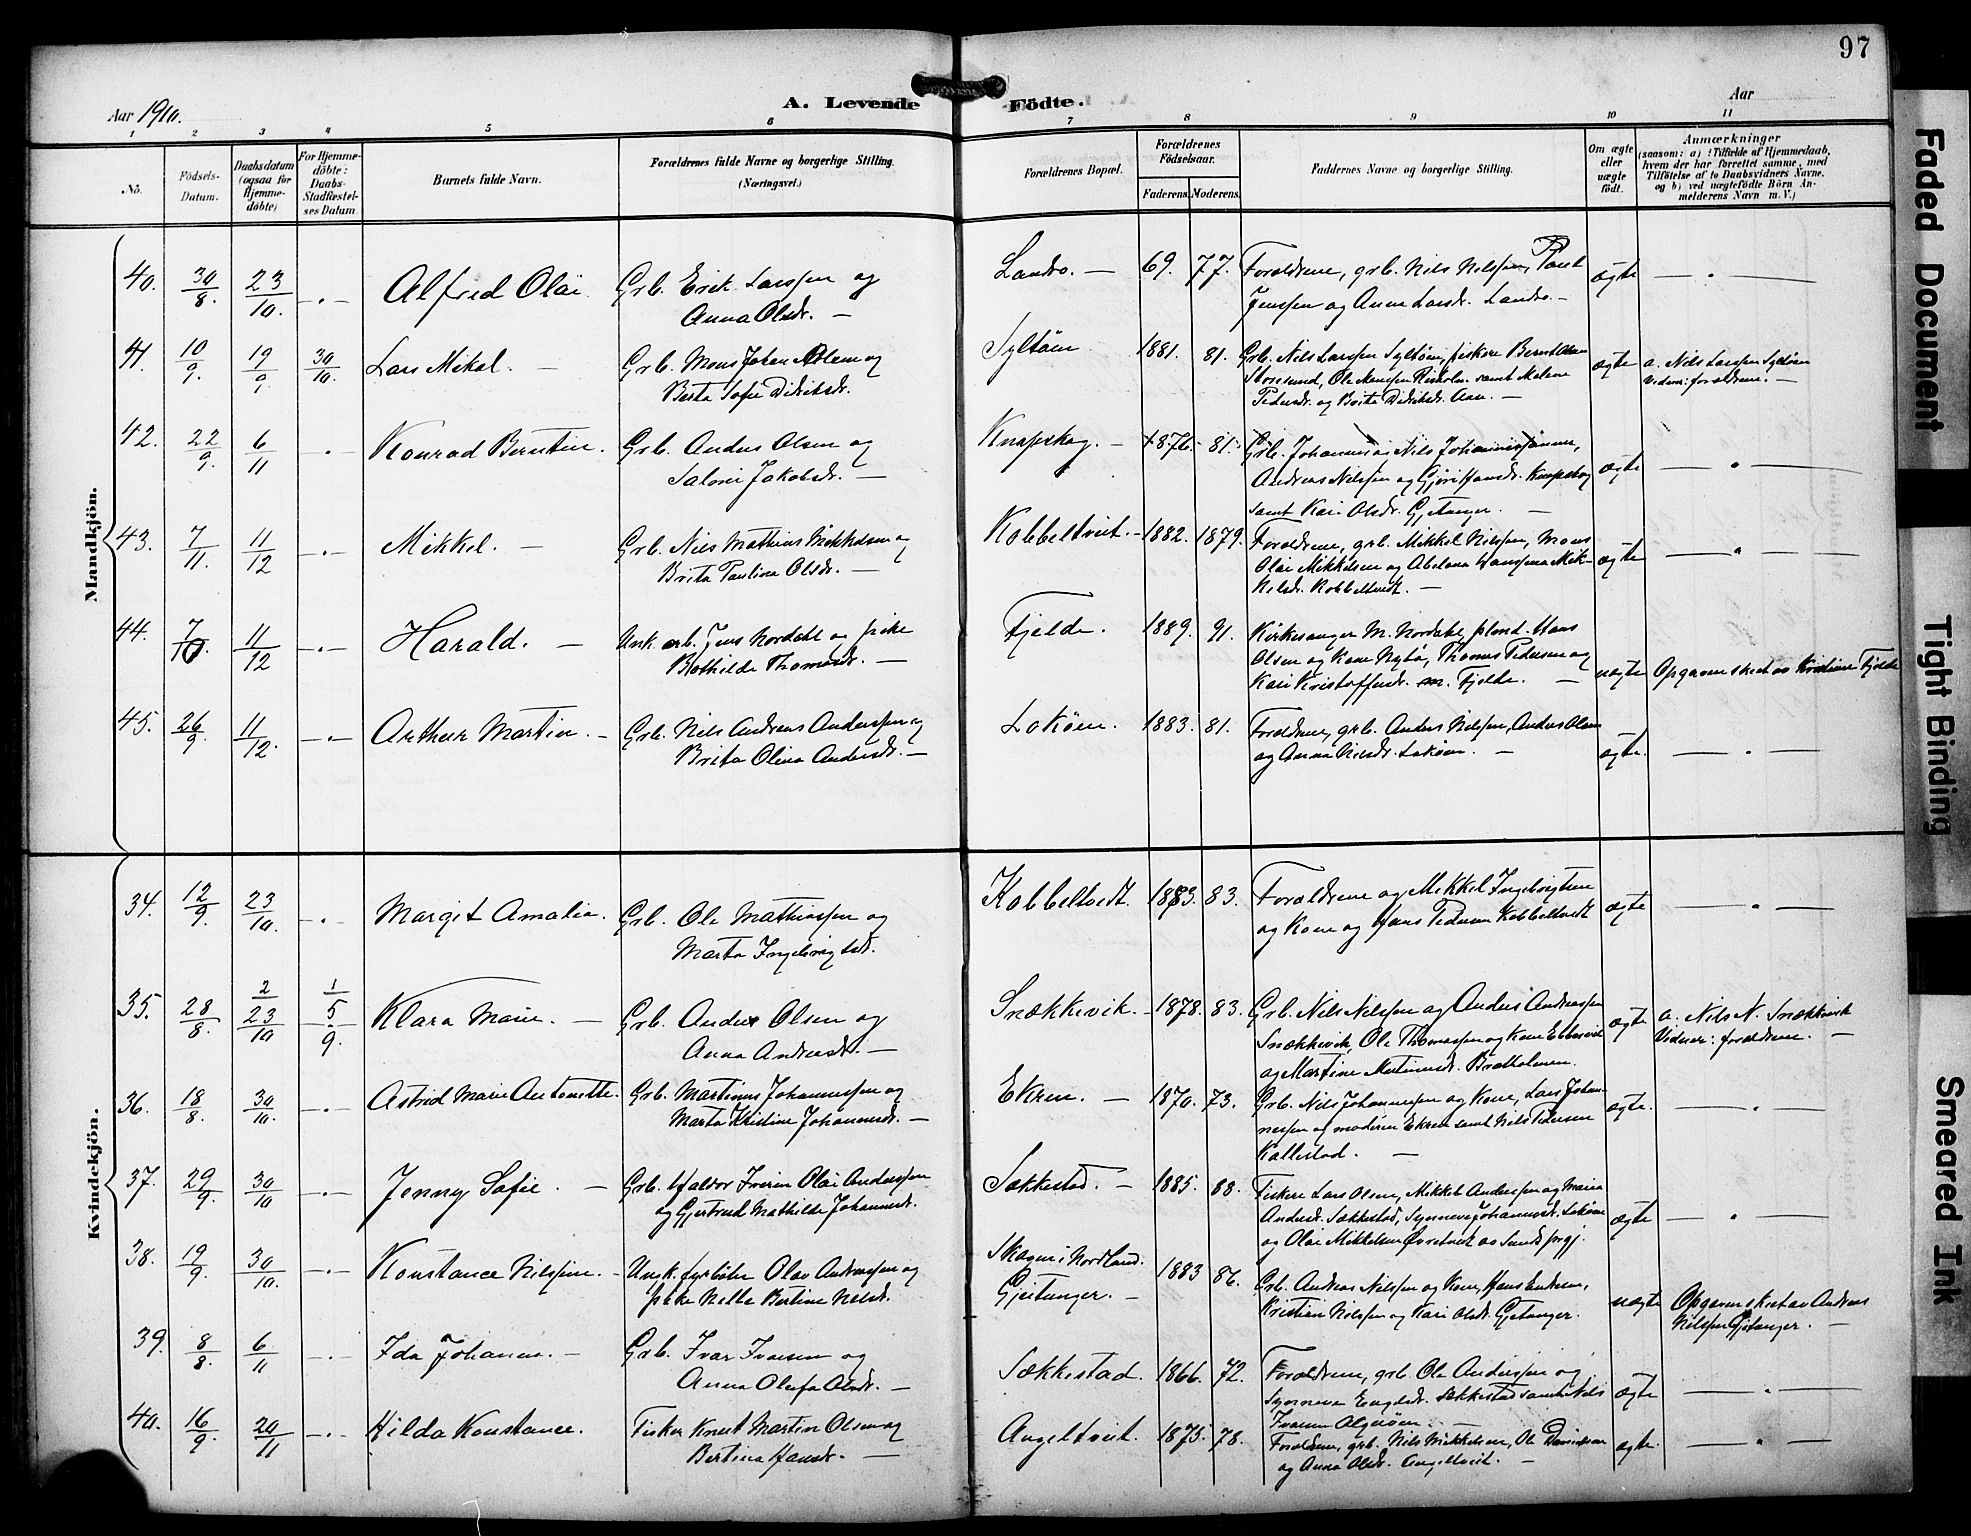 97
Aar 1910.
A. Levende Födte.
Aar
1 2 3 4 5 6 7 8 9 10 11
No.
Födsels-Datum.
Daabsdatum (ogsaa for Hjemme-döbte)
For Hjemme-döbte: Daabs-Stadfæstel-ses Datum
Barnets fulde Navn.
Forældrenes fulde Navne og borgerlige Stilling.
(Næringsvei.)
Forældrenes Bopæl.
Forældrenes Födselsaar.
Faderens. Moderens.
Faddernes Navne og borgerlige Stilling.
Om ægte eller uægte födt.
Anmærkninger
(saasom: a) i Tilfælde af Hjemmedaab,
hvem der har forrettet samme, med
Tilföielse af to Daabsvidners Navne,
og b) ved uægtefödte Börn An-
melderens Navn m. V.)
Mandkjön.
40. 30/8. 23/10. -.- Alfred Olai Grb. Erik Larssen og
Anna Olsdr. —
Landro. — 69. 77. Forældrene, grb. Nils Nilssen,
Jenssen og Anna Larsdr. Landro. — ægte
41. 10/9. 19/9. 30/10. Lars Mikal. — Grb. Mons Johan Olsen og
Berta Sofie Didriksdr.
Syltöen 1881. 81. Grb. Nils Larssen Syltöen, fisker Bernt Olsen
Storesund, Ole Monssen Risholm samt Malene
Pedersdr. og Brita Didriksdr. — ægte a. Nils Larssen Syltöen
Vidner: forældrene. —
42. 22/9. 6/11 -.- Konrad Berntin. Grb. Anders Olsen og
Salomi Jakobsdr. —
Knapskog. — 1876. 81. Grb. Johannes og Nils
Andreas Nilssen og Gjöri Hansdr. Knapskog
samt Kari Olsdr. Gjetanger. — ægte
43. 7/11. 11/12 -.- Mikkel. — Grb. Nils Mathias Mikkelsen og
Brita Paulina Olsdr. —
Kobbeltveit. — 1882. 1879. Forældrene, grb. Mikkel Nilssen, Mons
Olai Mikkelsen og Abelona
Nilsdr. Kobbeltvedt. — ægte
44. 7/10. 11/12 -.- Harald. — Unk. arb. Jens Nordahl og pike
Bothilde Thomasdr. —
Fjelde. 1889. 91. Kirkesanger M. Nordahl, Hans
Olsen og Kone Nybö, Thomas Pedersen og
Kari Kristoffersdr. Fjelde. — uægte Opgaven sket av Kristine Fjelde
45. 26/9. 11/12. -.- Arthur Martin. — Grb. Nils Andreas Anderssen og
Brita Olina Andersdr. —
Loköen. 1883. 81. Forældrene, grb. Anders Nilssen, Anders Olsen
og Anna Nilsdr. Loköen. — ægte.
Kvindekjön.
34. 12/9. 23/10. -.- Margit Amalia. Grb. Ole Mathiassen og
Marta Ingebrigtsdr.
Kobbeltvedt. 1883. 83. Forældrene og Mikkel Ingebrigtsen
og Kone og Hans Pedersen Kobbeltvedt ægte
35. 28/8. 2/23/10 1/5/9. Klara Marie. — Grb. Anders Olsen og
Anna Andersdr. —
Snækkevik. 1878. 83. Grb. Nils Nilssen og Anders Andreassen
Snækkevik, Ole Thomassen og Kone Ebbesvik
og Martine Martinusdr. Bratholmen. ægte a. Nils N. Snækkevik
Vidner: forældrene. —
36. 18/8. 30/10. -.- Astrid Marie Antonette. Grb. Martinus Johannessen og
Marta Kristine Johannesdr. —
Ekren. — 1870. 73. Grb. Nils Johannessen og Kone, Lars Johan-
nessen og moderen Ekren samt Nils Pedersen
Kallestad. — ægte.
37. 29/9. 30/10 -.- Jenny Sofie. — Grb. Haldor Iverin Olai Anderssen
og Gjertrud Mathilde Johannesdr.
Sækkestad. — 1885. 88. Fiskere Lars Olsen, Mikkel Anderssen og Maria
Andersdr. Sækkestad, Synneve Johannesdr. Loköen
og Olai Mikkelsen Övretvedt av Sunds prgj. ægte
38. 19/9. 30/10. -.- Konstance Nilssine. — Ungk. fyrböter Olav Andreassen og
pike Nella Bertine Nilsdr.
Skogen i Nordland.
Gjetanger. — 1883 86. Grb. Andreas Nilssen og Kone, Hans Endresen,
Kristian Nilssen og Kari Olsdr. Gjetanger. uægte Opgaven sket av Andreas
Nilssen Gjetanger. —
39. 8/8. 6/11 -.- Ida Johanna. — Grb. Ivar Ivarsen og
Anna Olufa Olsdr. —
Sækkestad. 1866. 72. Forældrene, grb. Ole Anderssen og
Synneva Engelsdr. Sækkestad samt Nils
Ivarsen Algeröen. ægte
40. 16/9. 20/11 -.- Hilda Konstance. Fisker Knut Martin Olsen og
Bertina Hansdr. —
Angeltveit. 1875. 78. Forældrene, grb. Nils Mikkelsen, Ole
og Anna Olsdr. Angeltveit. — ægte.
Faded Document
Tight Binding
Smeared Ink